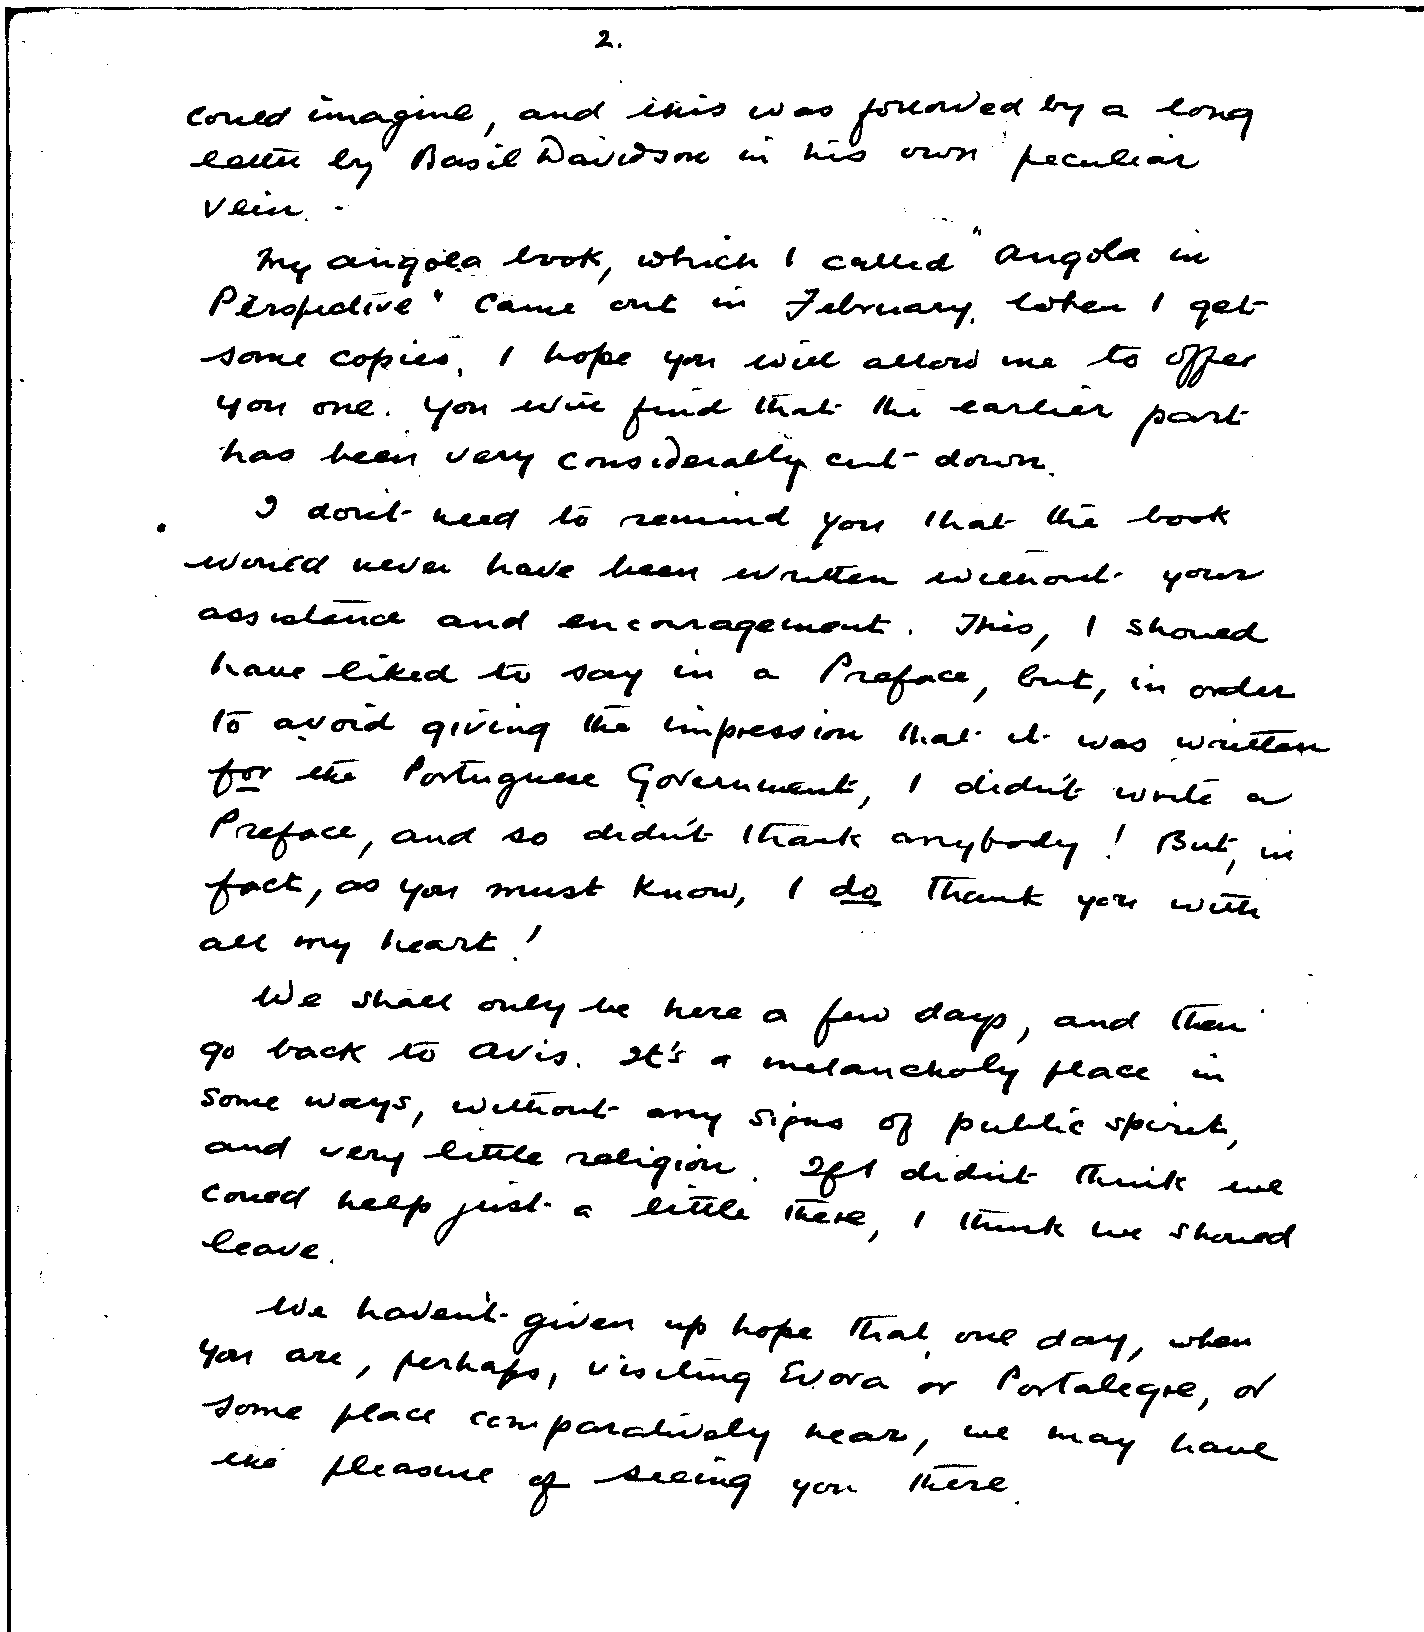 2.
could imagine, and this was followed by a long
letter by Basil Davidson in his own peculiar
vein. -
My Angola book, which I called "Angola in
Perspective" came out in February. When I get
some copies, I hope you will allow me to offer
you one. You will find that the earlier part
has been very considerably cut down.
I don't need to remind you that the book
would never have been written without your
assistance and encouragement. This, I should
have liked to say in a Preface, but, in order
to avoid giving the impression that it was written
for the Portuguese Government, I didn't write a
Preface, and so didn't thank anybody! But, in
fact, as you must know, I do thank you with
all my heart!
We shall only be here a few days, and then
go back to Avis. It's a melancholy place in
some ways, without any signs of public spirit,
and very little religion. If I didn't think we
could help just a little there, I think we should
leave.
We haven't given up hope that one day, when
you are, perhaps, visiting Evora or Portalegre, or
some place comparatively near, we may have
the pleasure of seeing you there.